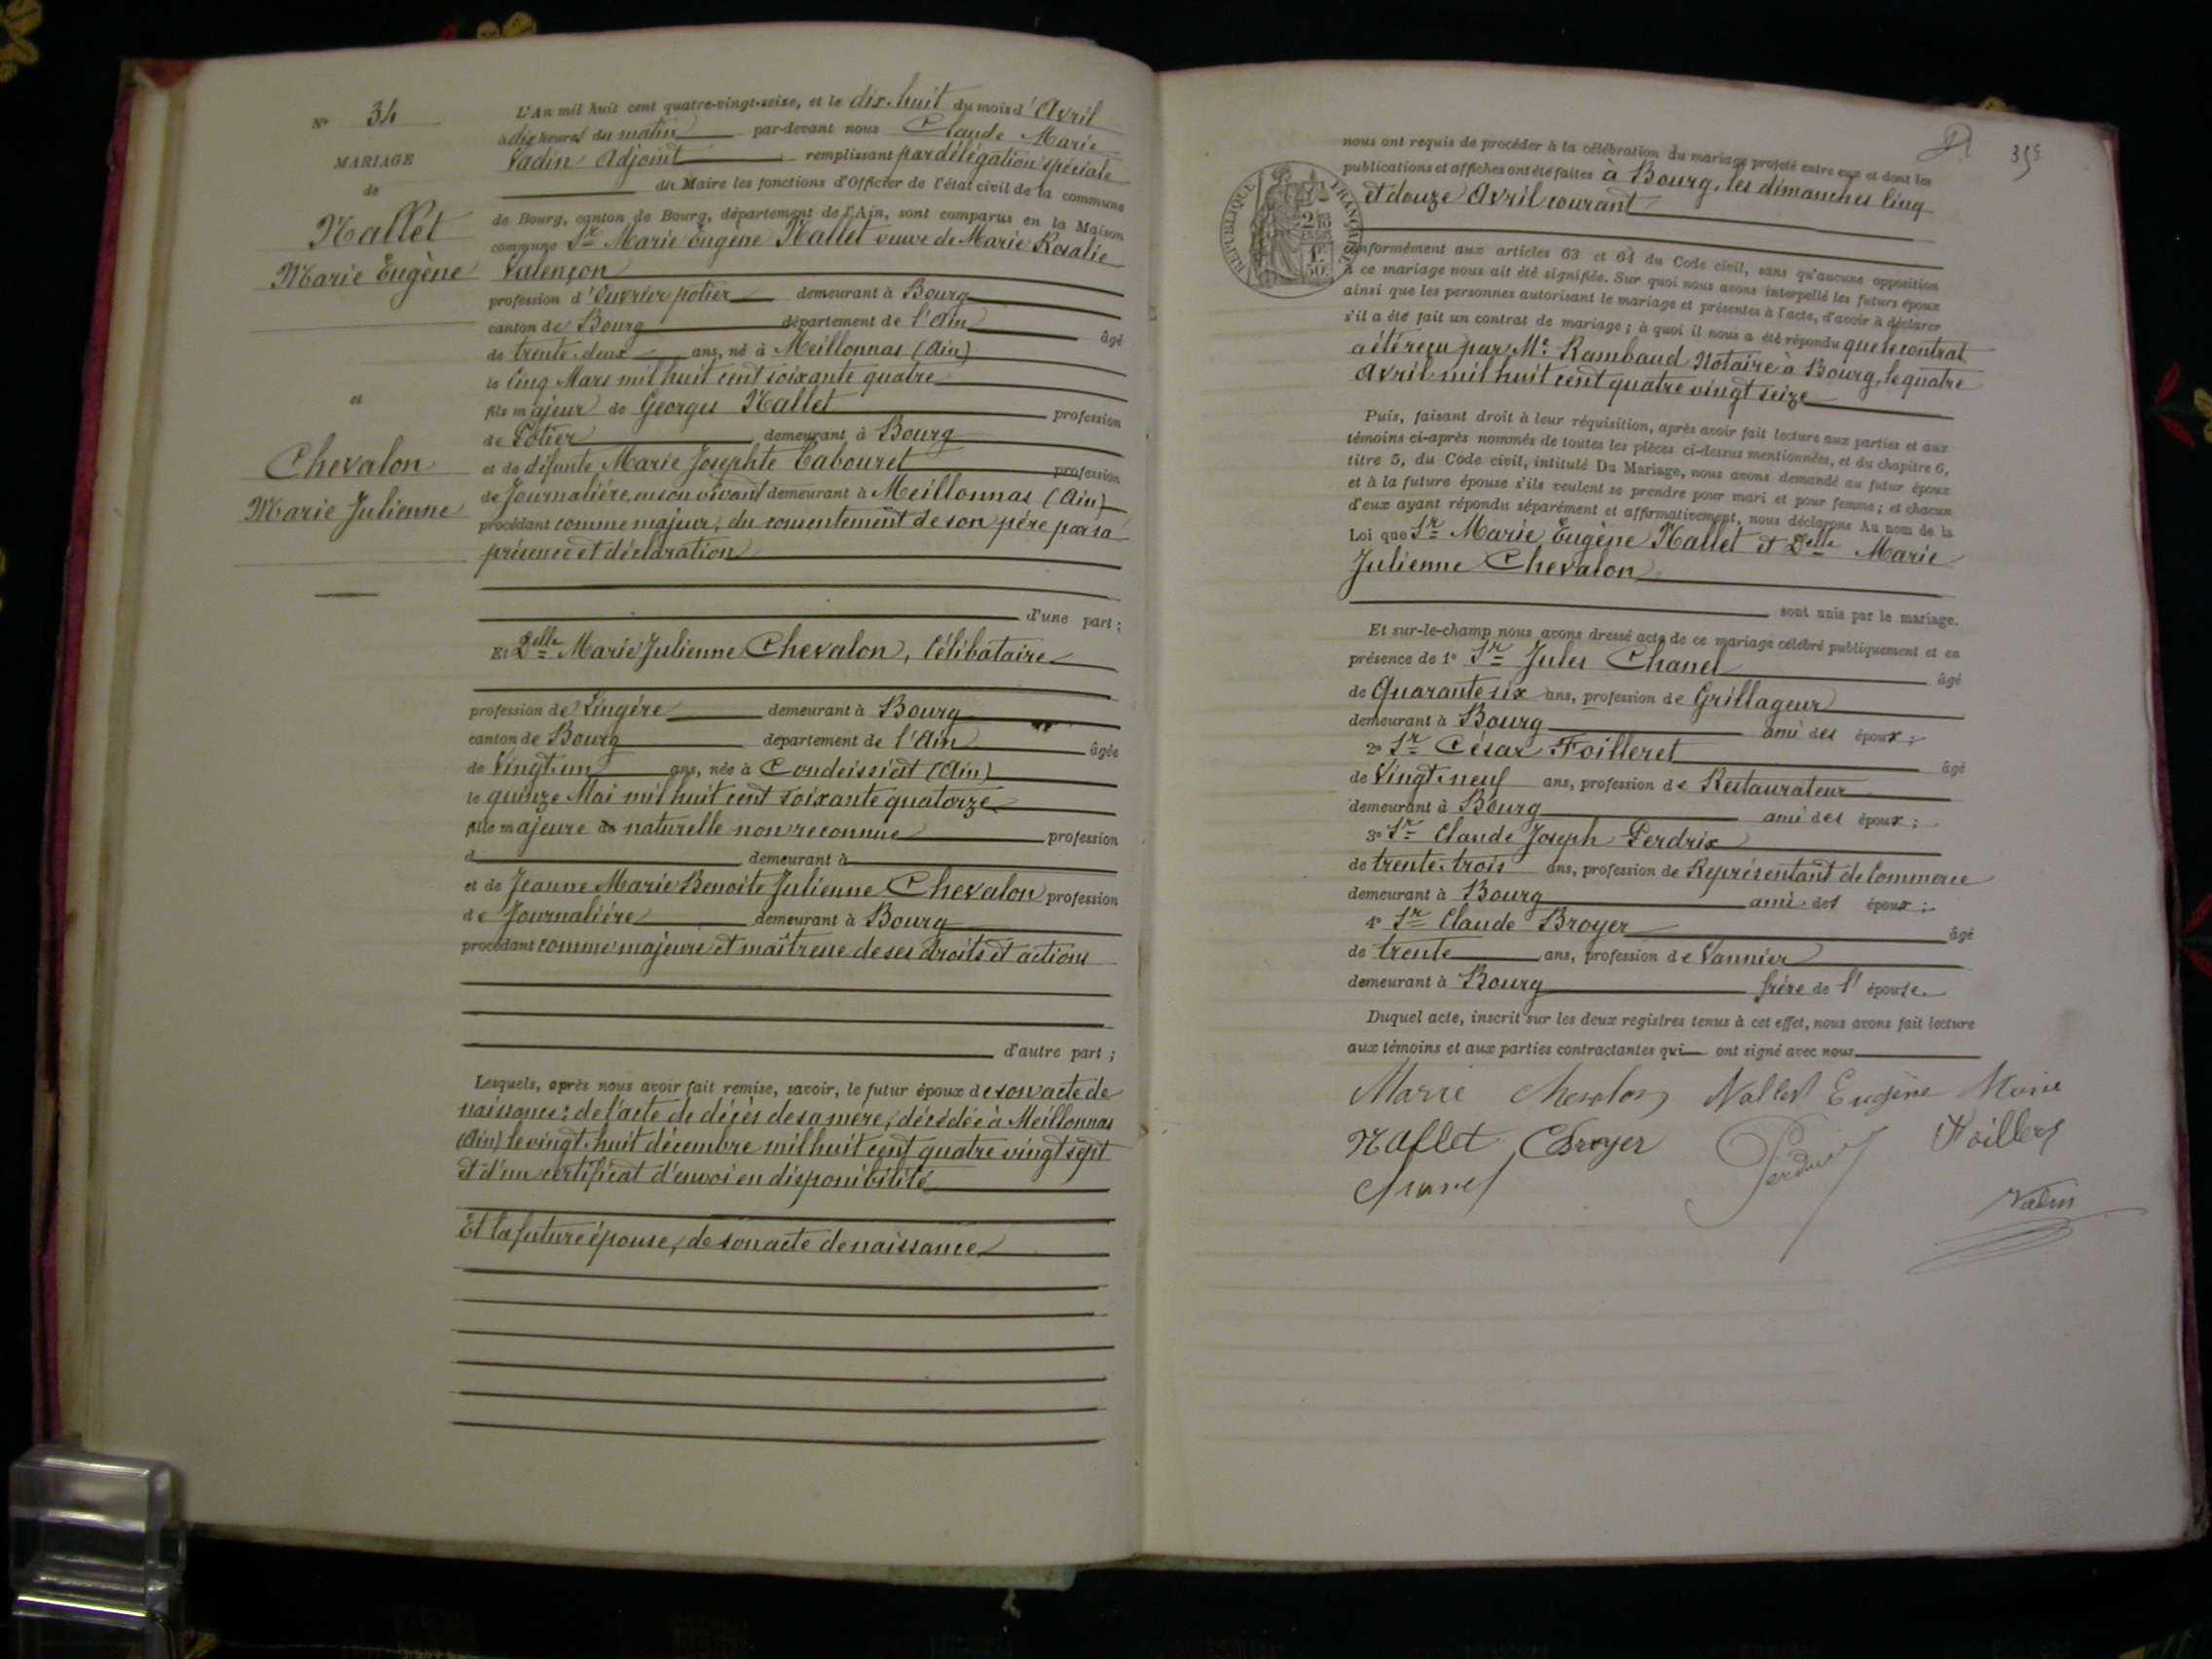 N° 34
MARIAGE
de
Nallet
Marie Eugène
et
Chevalon
Marie Julienne
L'An mil huit cent quatre-vingt-seize, et le dix-huit du mois d'Avril
à dix heures du matin par-devant nous Claude Marie
Vadin Adjoint remplissant par délégation spéciale
du Maire les fonctions d'Officier de l'état civil de la commune
de Bourg, canton de Bourg, département de l'Ain, sont comparus en la Maison
commune Sr Marie Eugène Nallet veuve de Marie Rosalie
Valençon
profession d'Ouvrier potier demeurant à Bourg
canton de Bourg département de l'Ain âgé
de trente-deux ans, né à Meillonnas (Ain)
le Cinq Mars mil huit cent soixante quatre
fils majeur de Georges Nallet profession
de Potier demeurant à Bourg
et de défunte Marie Josephte Cabouret profession
de Journalière, en son vivant demeurant à Meillonnas (Ain)
procédant comme majeur, du consentement de son père par sa
présence et déclaration
d'une part ;
Et Delle Marie Julienne Chevalon, Célibataire
profession de Lingère demeurant à Bourg
canton de Bourg département de l'Ain âgée
de Vingt-un ans, née à Condeissiat (Ain)
le quinze Mai mil huit cent soixante quatorze
fille majeure de naturelle non reconnue profession
d demeurant à
et de Jeanne Marie Benoite Julienne Chevalon profession
de Journalière demeurant à Bourg
procédant comme majeure et maîtresse de ses droits et actions
d'autre part ;
Lesquels, après nous avoir fait remise, savoir, le futur époux de son acte de
naissance ; de l'acte de décès de sa mère, décédée à Meillonnas
(Ain) le vingt-huit décembre mil huit cent quatre vingt sept
et d'un certificat d'envoi en disponibilité
Et la future épouse, de son acte de naissance
35e
nous ont requis de procéder à la célébration du mariage projeté entre eux et dont les
publications et affiches ont été faites à Bourg, les dimanches Cinq
et douze Avril courant
RÉPUBLIQUE FRANÇAISE
conformément aux articles 63 et 64 du Code civil, sans qu'aucune opposition
à ce mariage nous ait été signifiée. Sur quoi nous avons interpellé les futurs époux
ainsi que les personnes autorisant le mariage et présentes à l'acte, d'avoir à déclarer
s'il a été fait un contrat de mariage ; à quoi il nous a été répondu que le contrat
a été reçu par Me Rambaud Notaire à Bourg, le quatre
Avril mil huit cent quatre vingt seize
Puis, faisant droit à leur réquisition, après avoir fait lecture aux parties et aux
témoins ci-après nommés de toutes les pièces ci-dessus mentionnées, et du chapitre 6,
titre 5, du Code civil, intitulé Du Mariage, nous avons demandé au futur époux
et à la future épouse s'ils veulent se prendre pour mari et pour femme ; et chacun
d'eux ayant répondu séparément et affirmativement, nous déclarons Au nom de la
Loi que Sr Marie Eugène Nallet et Delle Marie
Julienne Chevalon
sont unis par le mariage.
Et sur-le-champ nous avons dressé acte de ce mariage célébré publiquement et en
présence de 1° Sr Jules Chanel âgé
de Quarante six ans, profession de Grillageur
demeurant à Bourg ami des époux ;
2° Sr César Foilleret âgé
de Vingt-neuf ans, profession de Restaurateur
demeurant à Bourg ami des époux ;
3° Sr Claude Joseph Perdrix
de trente-trois ans, profession de Représentant de Commerce
demeurant à Bourg ami des époux ;
4° Sr Claude Broyer âgé
de trente ans, profession de Vannier
demeurant à Bourg frère de l'épouse.
Duquel acte, inscrit sur les deux registres tenus à cet effet, nous avons fait lecture
aux témoins et aux parties contractantes qui ont signé avec nous
Marie Chevalon Nallet Eugène Marie
Nallet CBroyer Perdrix Foilleret
Chanel Vadin